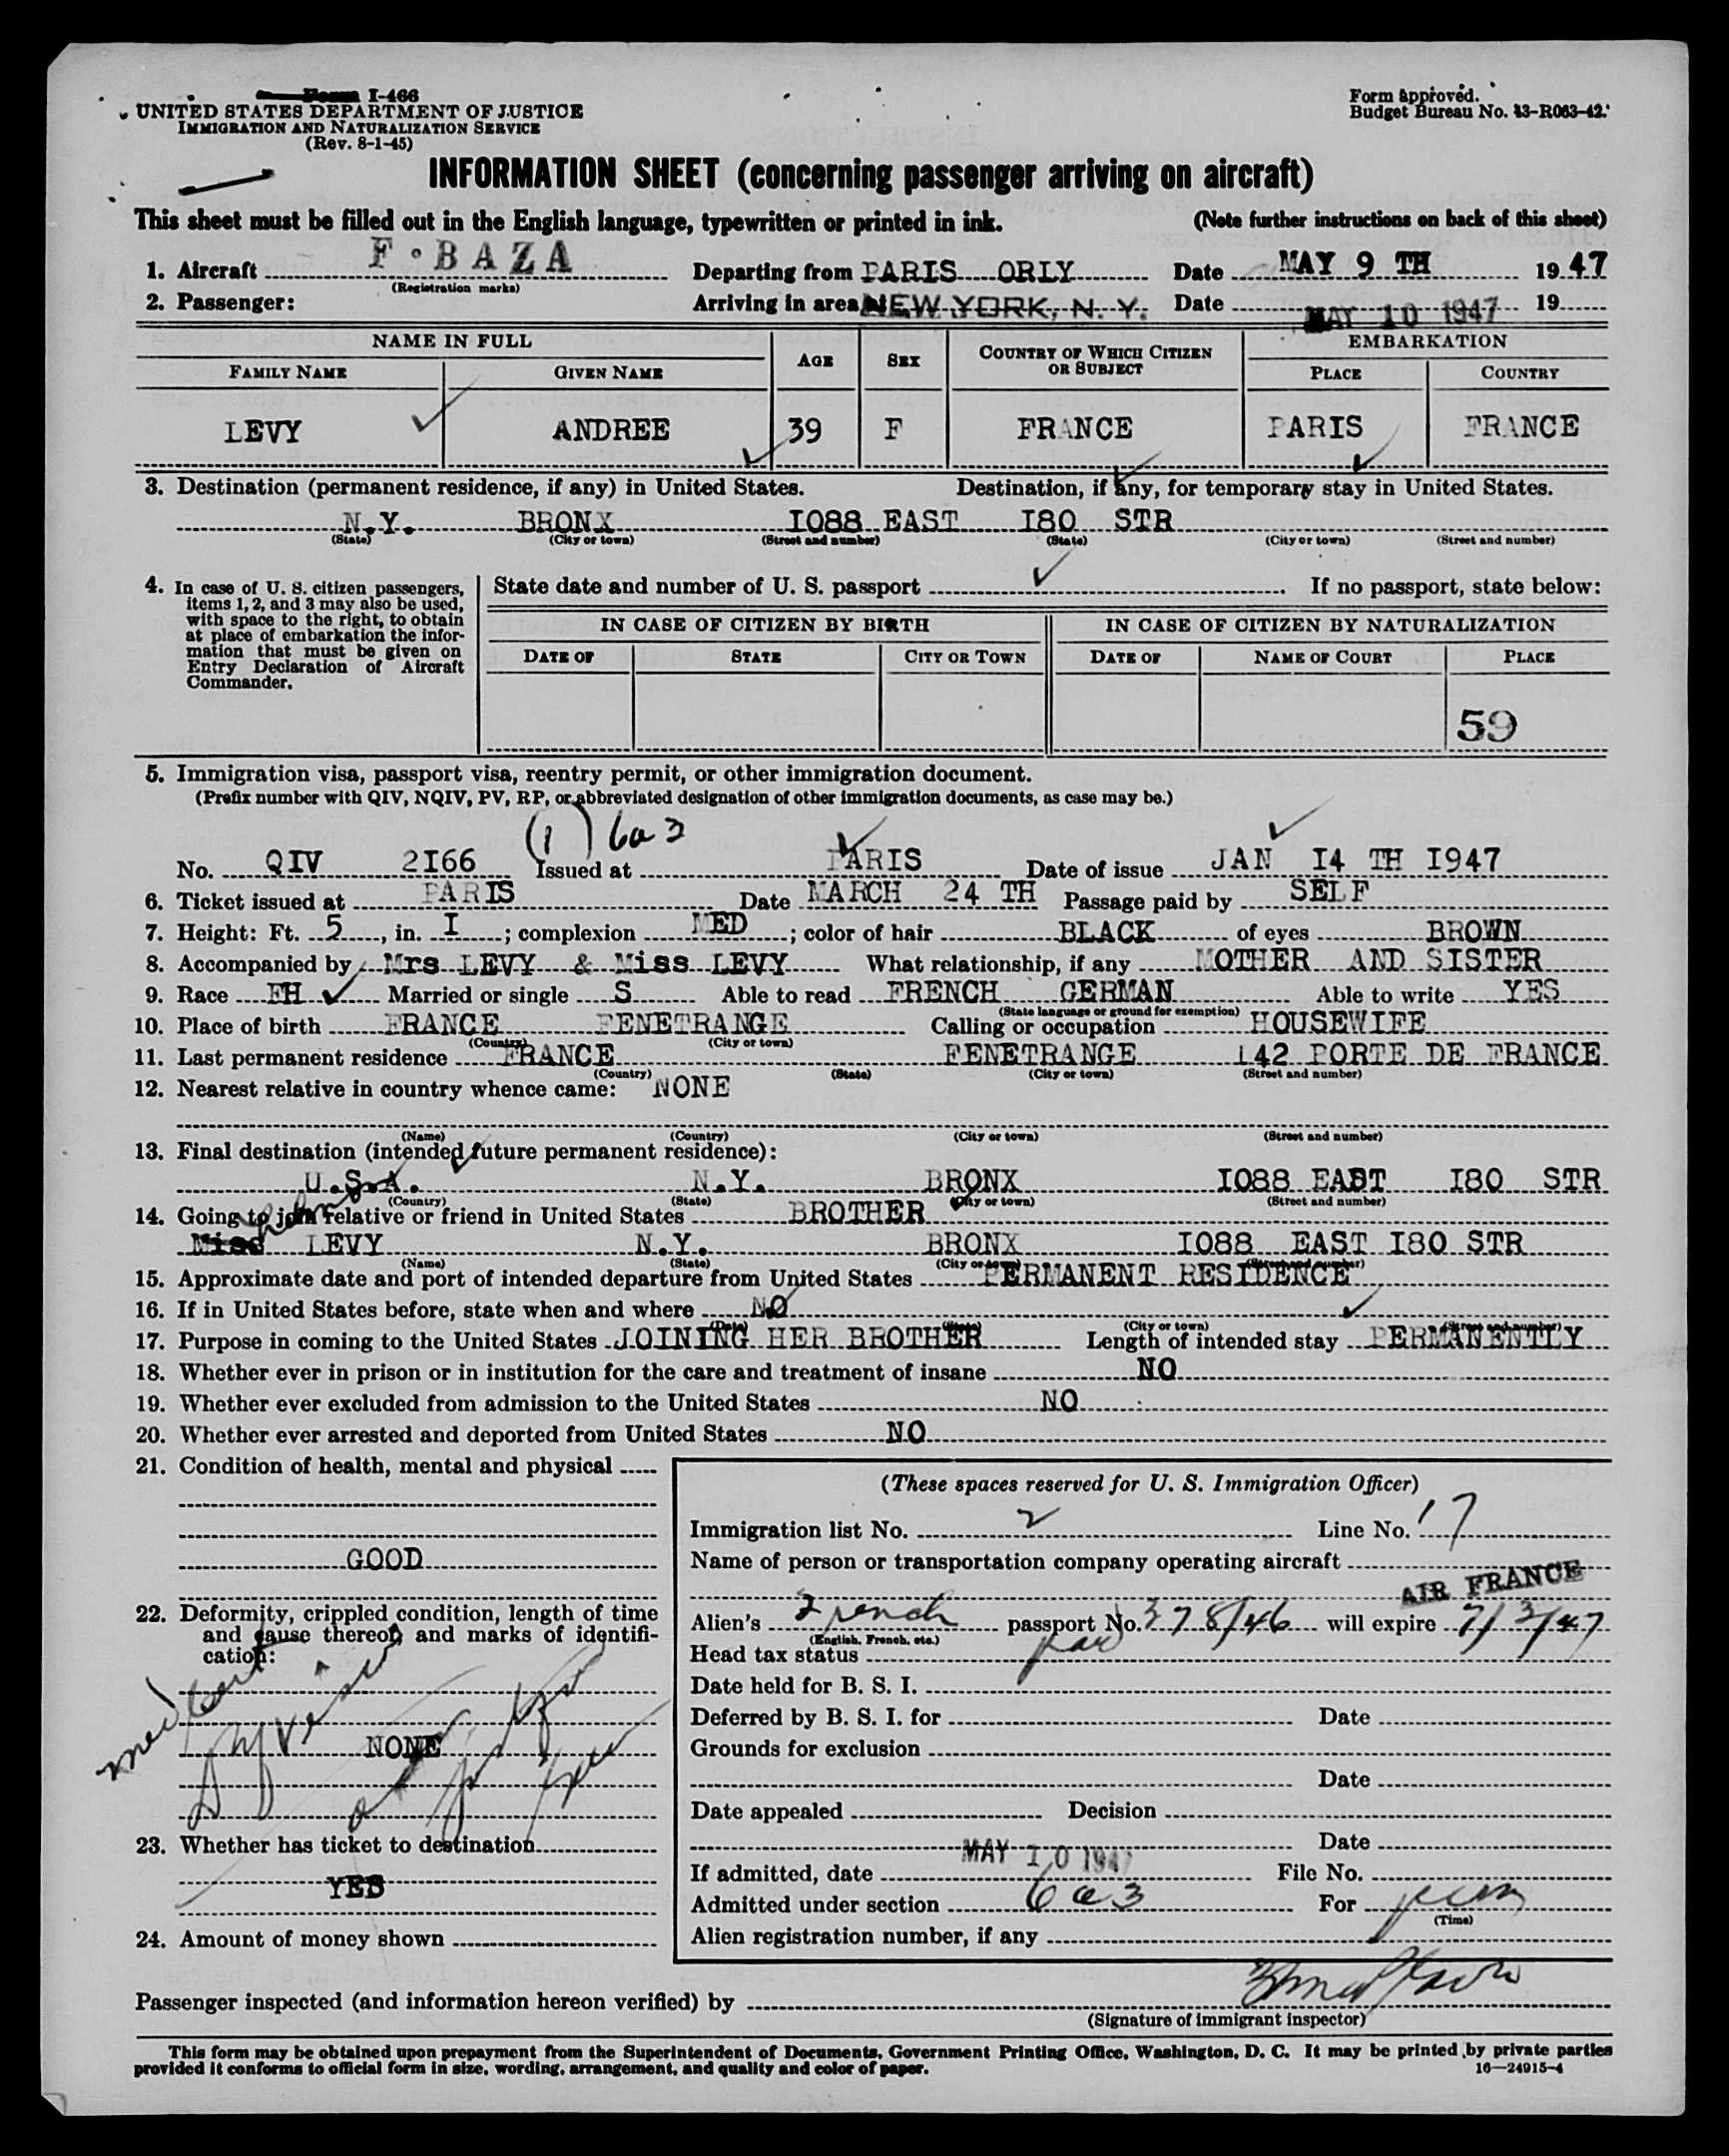 Form I-466
UNITED STATES DEPARTMENT OF JUSTICE
IMMIGRATION AND NATURALIZATION SERVICE
(Rev. 8-1-45)
Form approved.
Budget Bureau No. 43-R063-42.
INFORMATION SHEET (concerning passenger arriving on aircraft)
This sheet must be filled out in the English language, typewritten or printed in ink. (Note further instructions on back of this sheet)
1. Aircraft F·BAZA Departing from PARIS ORLY Date MAY 9 TH 1947
(Registration marks)
2. Passenger: Arriving in area NEW YORK, N. Y. Date MAY 10 1947 19
NAME IN FULL AGE SEX COUNTRY OF WHICH CITIZEN OR SUBJECT EMBARKATION
FAMILY NAME GIVEN NAME PLACE COUNTRY
LEVY ANDREE 39 F FRANCE PARIS FRANCE
3. Destination (permanent residence, if any) in United States. Destination, if any, for temporary stay in United States.
N.Y. BRONX I088 EAST I80 STR
(State) (City or town) (Street and number) (State) (City or town) (Street and number)
4. In case of U. S. citizen passengers, items 1, 2, and 3 may also be used, with space to the right, to obtain at place of embarkation the information that must be given on Entry Declaration of Aircraft Commander.
State date and number of U. S. passport If no passport, state below:
IN CASE OF CITIZEN BY BIRTH IN CASE OF CITIZEN BY NATURALIZATION
DATE OF STATE CITY OR TOWN DATE OF NAME OF COURT PLACE
59
5. Immigration visa, passport visa, reentry permit, or other immigration document.
(Prefix number with QIV, NQIV, PV, RP, or abbreviated designation of other immigration documents, as case may be.)
(1) 6a3
No. QIV 2I66 Issued at PARIS Date of issue JAN I4 TH I947
6. Ticket issued at PARIS Date MARCH 24 TH Passage paid by SELF
7. Height: Ft. 5, in. I; complexion MED; color of hair BLACK of eyes BROWN
8. Accompanied by Mrs LEVY & Miss LEVY What relationship, if any MOTHER AND SISTER
9. Race FH Married or single S Able to read FRENCH GERMAN Able to write YES
(State language or ground for exemption)
10. Place of birth FRANCE FENETRANGE Calling or occupation HOUSEWIFE
(Country) (City or town)
11. Last permanent residence FRANCE FENETRANGE 142 PORTE DE FRANCE
(Country) (State) (City or town) (Street and number)
12. Nearest relative in country whence came: NONE
(Name) (Country) (City or town) (Street and number)
13. Final destination (intended future permanent residence):
U.S.A. N.Y. BRONX I088 EAST I80 STR
(Country) (State) (City or town) (Street and number)
14. Going to join relative or friend in United States BROTHER
Miss LEVY N.Y. BRONX I088 EAST I80 STR
(Name) (State) (City or town) (Street and number)
15. Approximate date and port of intended departure from United States PERMANENT RESIDENCE
16. If in United States before, state when and where NO
(Date) (State) (City or town) (Street and number)
17. Purpose in coming to the United States JOINING HER BROTHER Length of intended stay PERMANENTLY
18. Whether ever in prison or in institution for the care and treatment of insane NO
19. Whether ever excluded from admission to the United States NO
20. Whether ever arrested and deported from United States NO
21. Condition of health, mental and physical
GOOD
22. Deformity, crippled condition, length of time and cause thereof, and marks of identification:
med cert
NONE
23. Whether has ticket to destination
YES
24. Amount of money shown
(These spaces reserved for U. S. Immigration Officer)
Immigration list No. 2 Line No. 17
Name of person or transportation company operating aircraft
AIR FRANCE
Alien's French passport No. 378/46 will expire 7/3/47
(English, French, etc.)
Head tax status
Date held for B. S. I.
Deferred by B. S. I. for Date
Grounds for exclusion
Date
Date appealed Decision
Date
If admitted, date MAY 10 1947 File No.
Admitted under section 6a3 For perm
(Time)
Alien registration number, if any
Passenger inspected (and information hereon verified) by
(Signature of immigrant inspector)
This form may be obtained upon prepayment from the Superintendent of Documents, Government Printing Office, Washington, D. C. It may be printed by private parties
provided it conforms to official form in size, wording, arrangement, and quality and color of paper. 16—24915-4